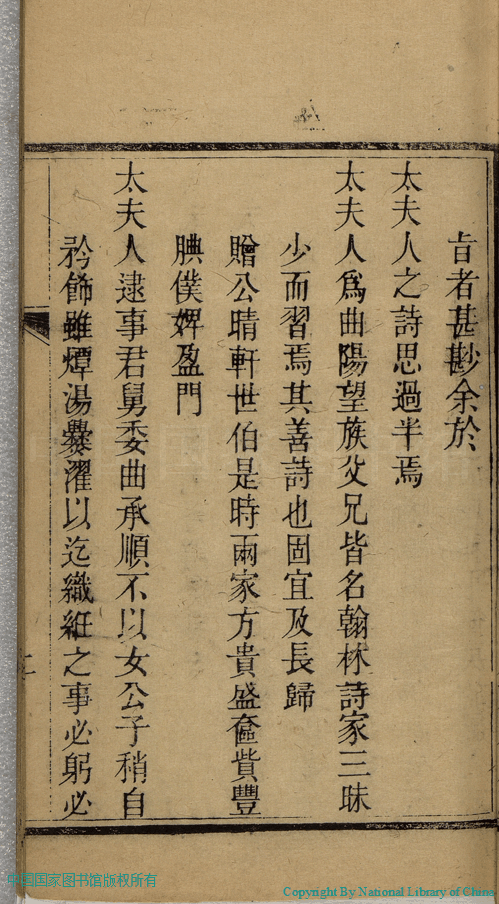 旨者甚尠余於
太夫人之詩思過半焉
太夫人爲曲陽望族父兄皆名翰林詩家三昧
少而習焉其善詩也固宜及長歸
贈公晴軒世伯是時兩家方貴盛奩貲豐
腆僕婢盈門
太夫人逮事君舅委曲承順不以女公子稍自
矜飾雖燂湯爨濯以迄織紝之事必躬必
二
中国国家图书馆版权所有
Copyright By National Library of China